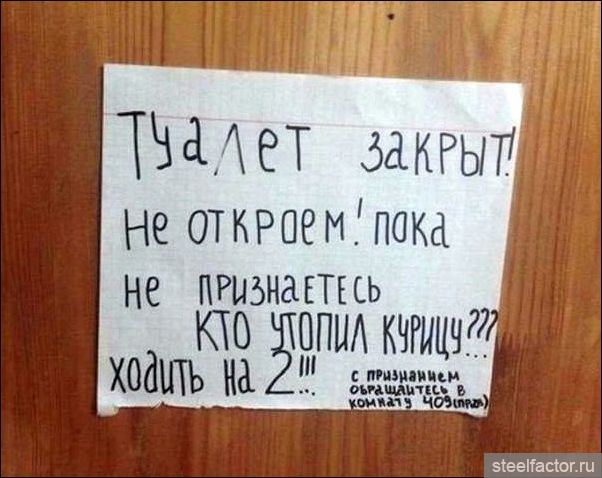 Туалет закрыт!
не откроем! пока
не признаетесь
кто утопил курицу???
ходить на 2!!!
с признанием
обращайтесь в
комнату 409(прав)
steelfactor.ru